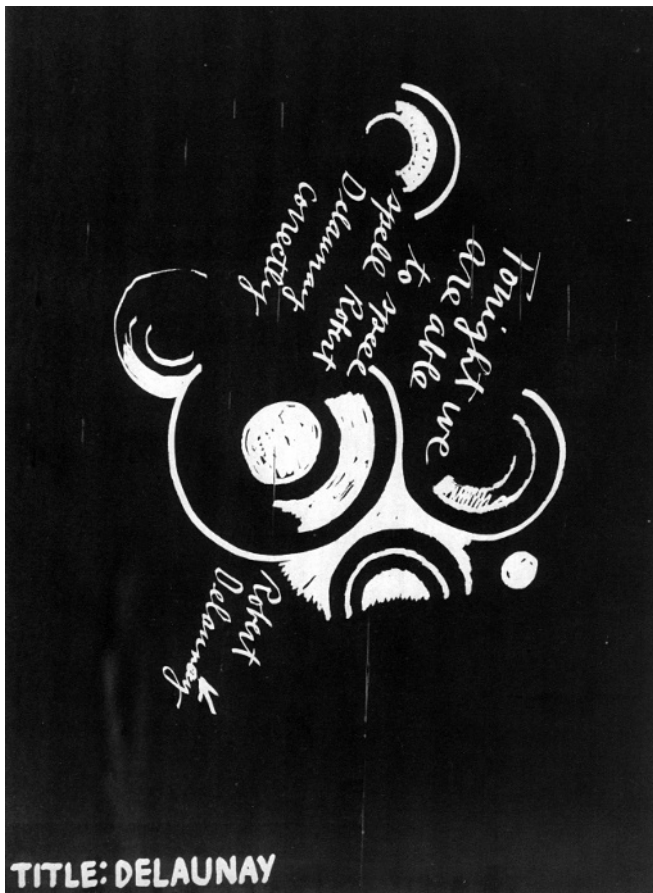 Tonight we
are able
to
spell spell Robert
Delaunay
correctly
Robert
Delaunay
TITLE: DELAUNAY